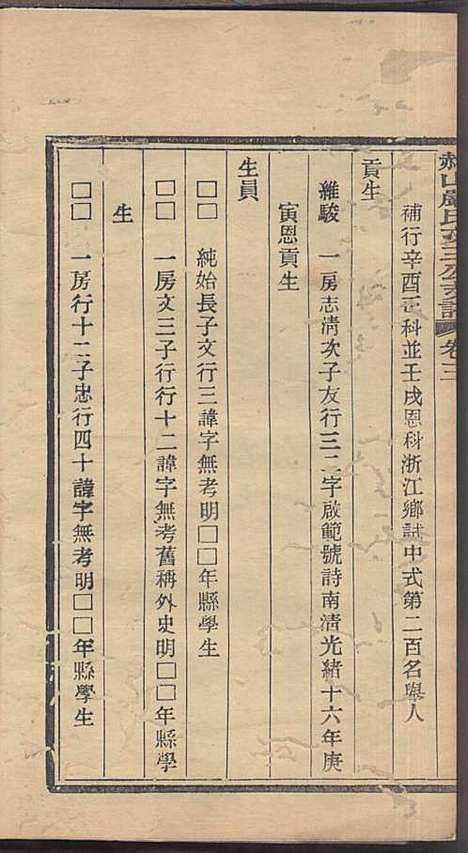 補行辛酉正科並壬戌恩科浙江鄉試中式第二百名舉人
貢生
維駿　一房志清次子友行三二字啟範號詩南清光緒十六年庚
寅恩貢生
生員
□□　純始長子文行三諱字無考明□□年縣學生
□□　一房文三子行行十二諱字無考舊稱外史明□□年縣學
生
□□　一房行十二子忠行四十諱字無考明□□年縣學生